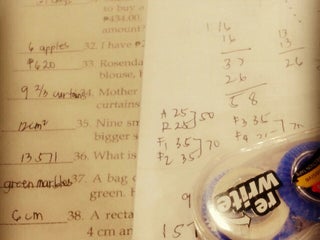 to buy a
₱434.00.
amount?
6 apples 32. I have ₱
₱620 33. Rosenda
blouse,
9 2/3 curtains 34. Mother
curtains
12cm² 35. Nine sm
bigger s
13,571 36. What is
green marbles 37. A bag
green.
6 cm 38. A recta
4 cm an
16
16
26
58
13
13
26
A 25
R 25 50
F1 35
F2 35 70
F3 35
9
157
re
write